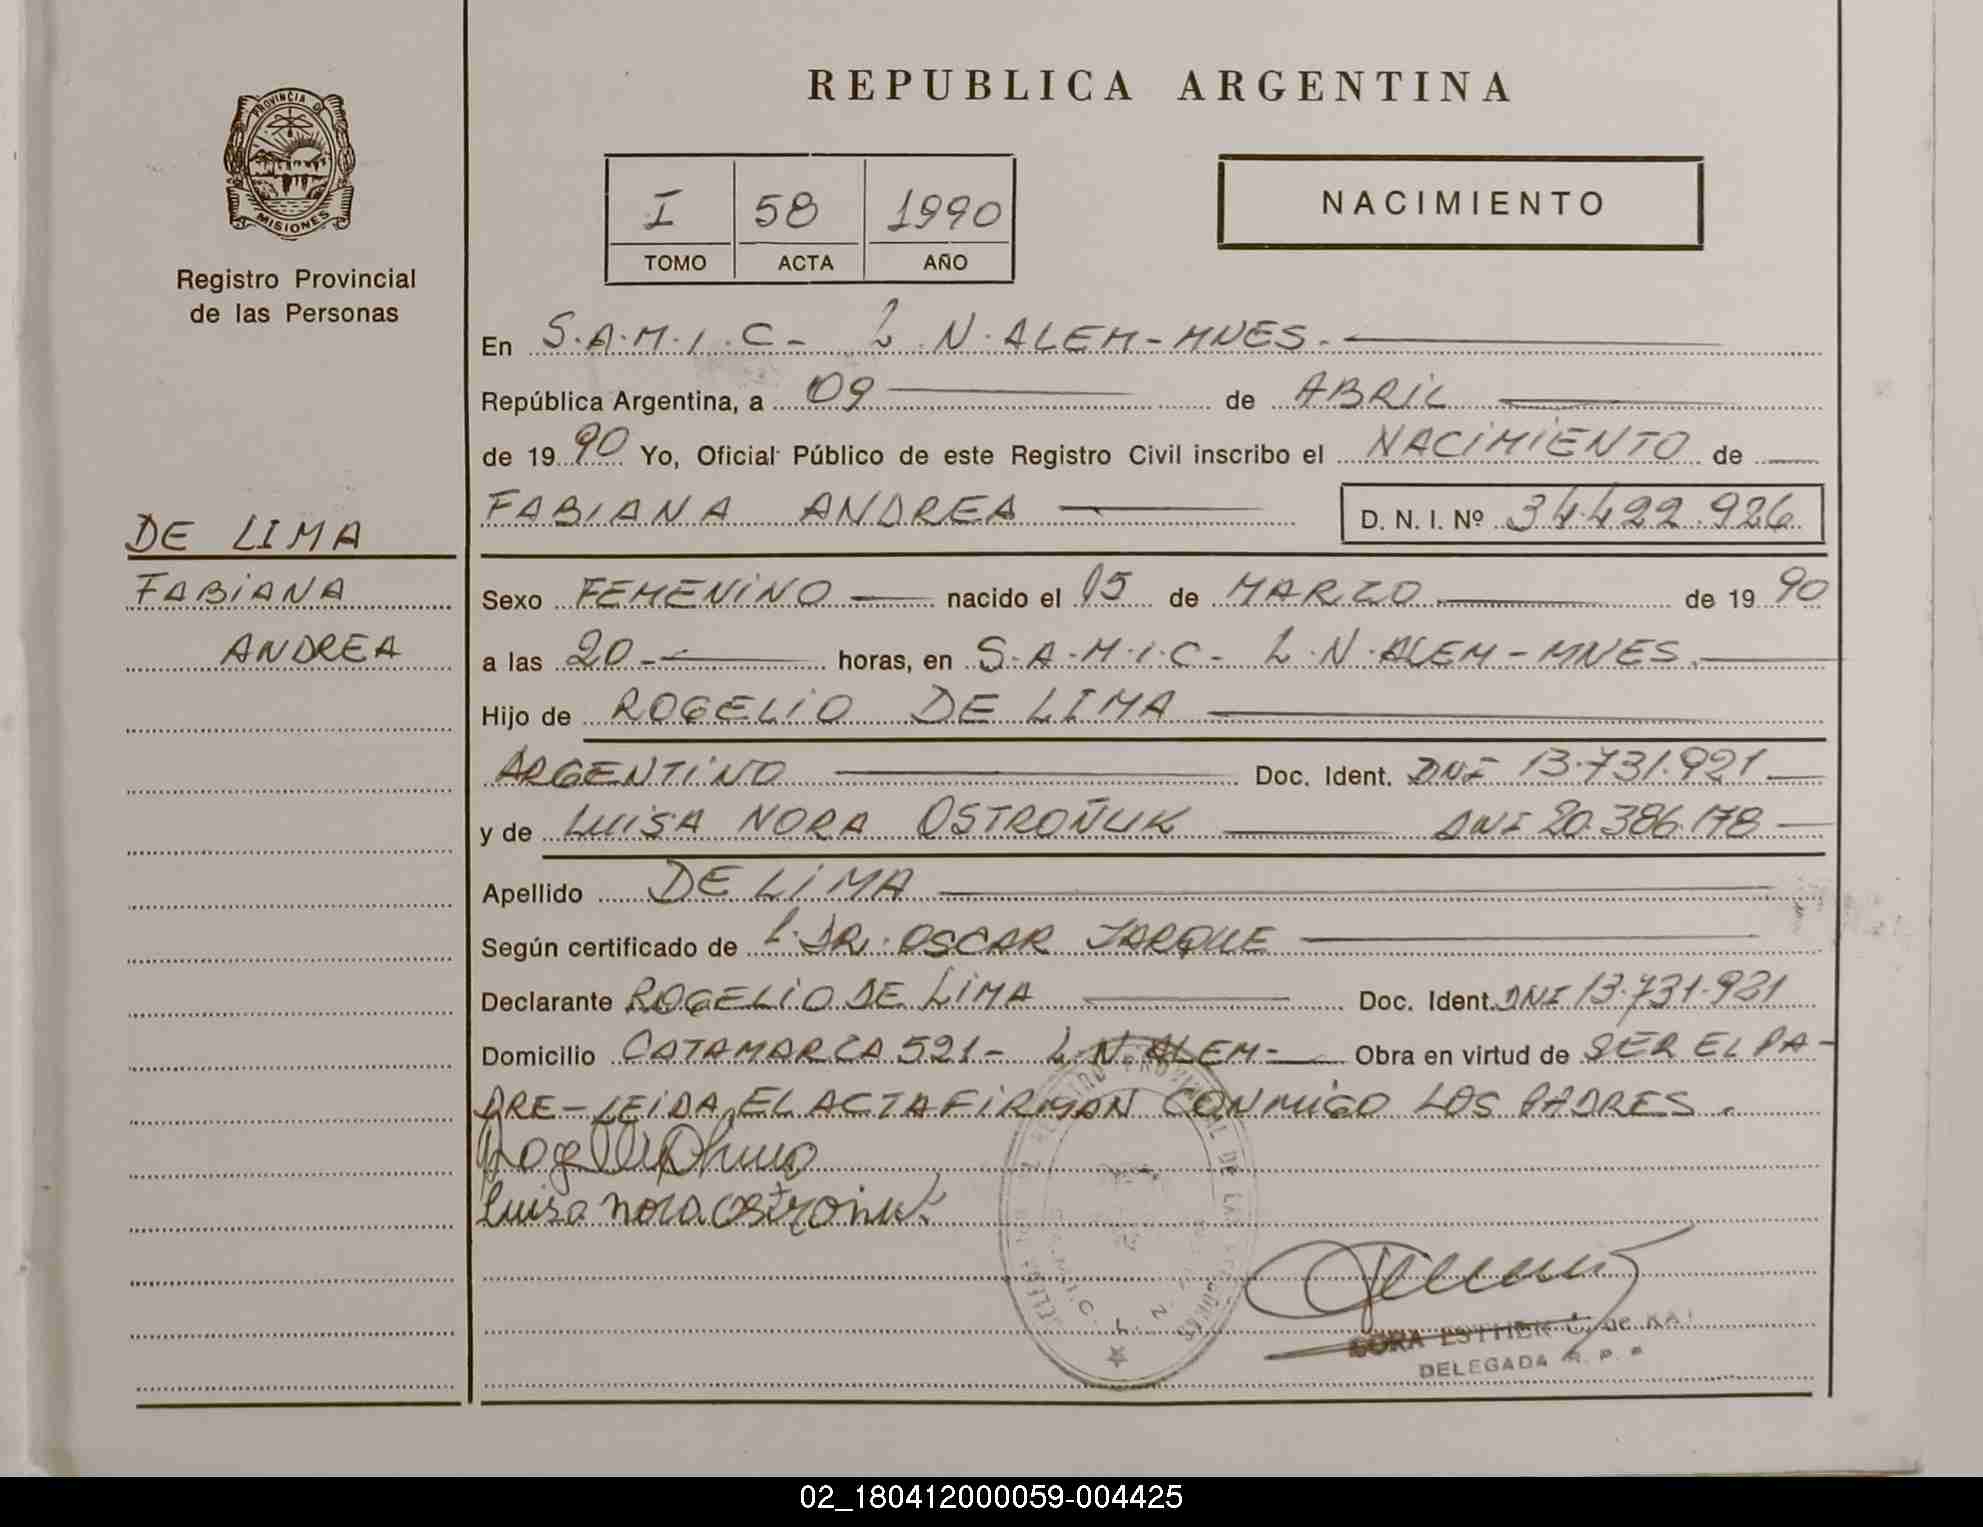 REPUBLICA ARGENTINA
PROVINCIA DE
MISIONES
Registro Provincial
de las Personas
I 58 1990
TOMO ACTA AÑO
NACIMIENTO
En S.A.M.I.C- L.N.ALEM-MNES.
República Argentina, a 09 de ABRIL
de 1990 Yo, Oficial Público de este Registro Civil inscribo el NACIMIENTO de
FABIANA ANDREA D. N. I. Nº 34.422.926
DE LIMA
FABIANA
ANDREA
Sexo FEMENINO nacido el 15 de MARZO de 1990
a las 20- horas, en S.A.M.I.C- L.N.ALEM-MNES.
Hijo de ROGELIO DE LIMA
ARGENTINO Doc. Ident. DNI 13.731.921
y de LUISA NORA OSTROÑUK DNI 20.386.178
Apellido DE LIMA
Según certificado de L. DR. OSCAR JARQUE
Declarante ROGELIO DE LIMA Doc. Ident. DNI 13.731.921
Domicilio CATAMARCA 521- L.N.ALEM- Obra en virtud de SER EL PA-
DRE-LEIDA EL ACTA FIRMAN CONMIGO LOS PADRES.
Luisa Nora Ostroñuk
ESTHER C. de
DELEGADA R. P. P.
02_180412000059-004425